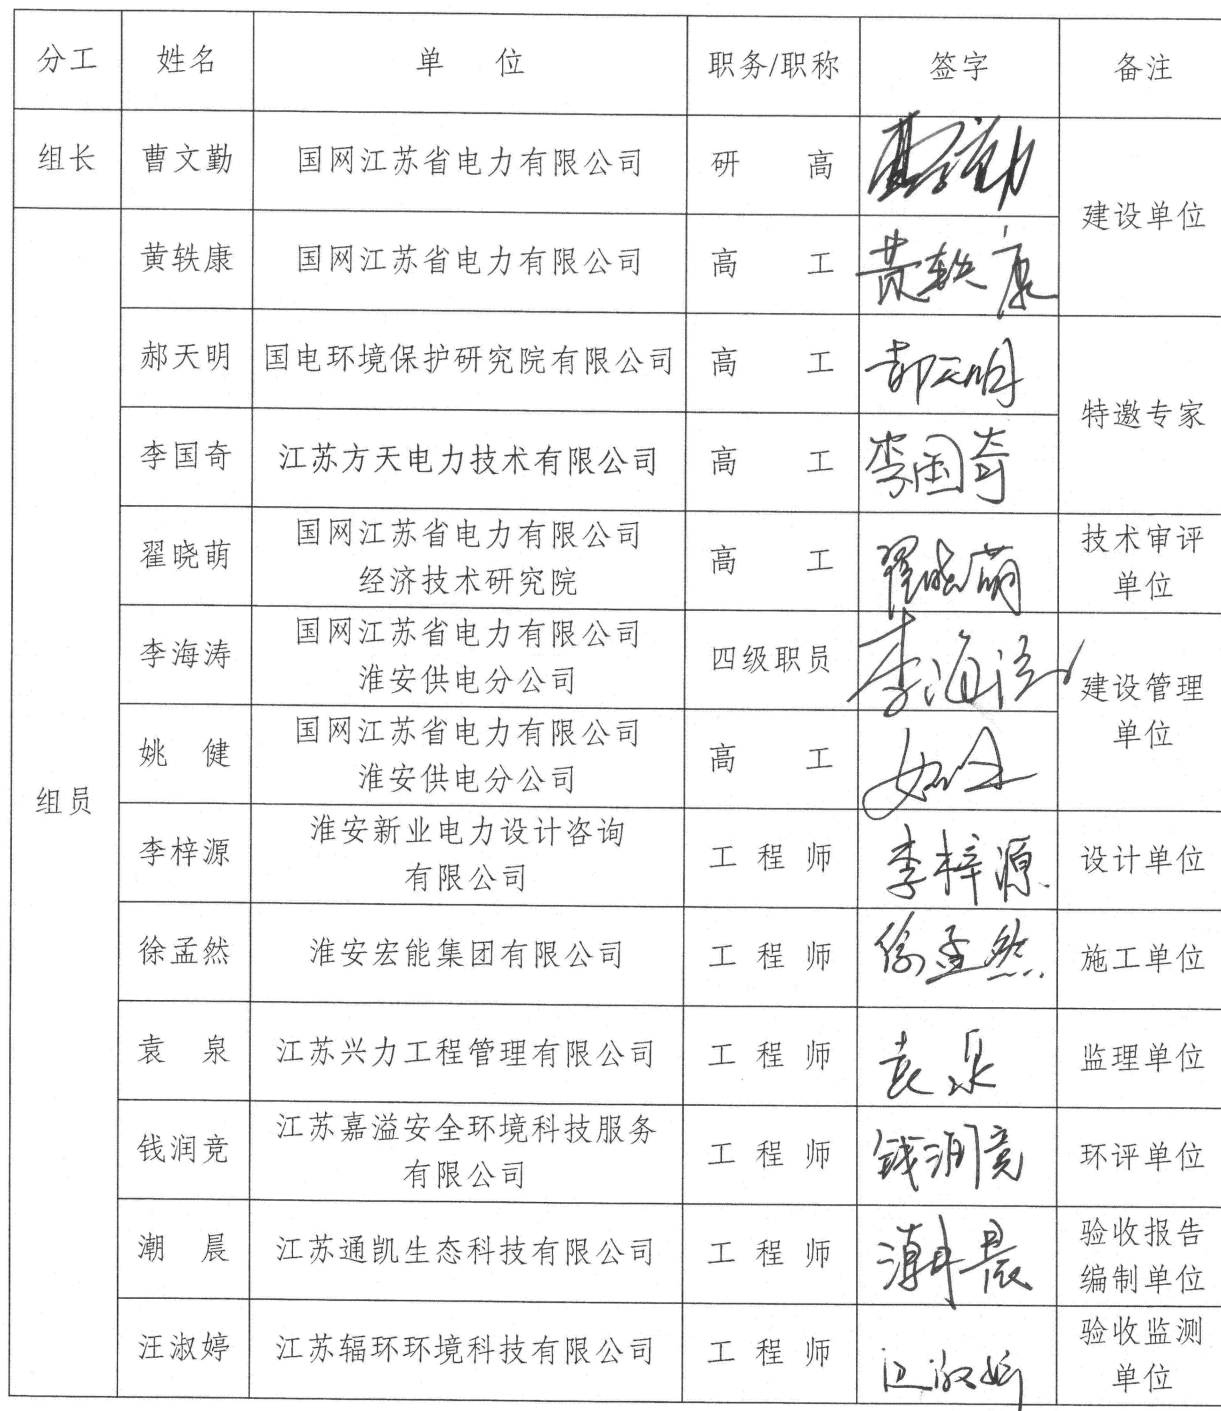 分工 姓名 单 位 职务/职称 签字 备注
组长 曹文勤 国网江苏省电力有限公司 研 高 曹文勤
建设单位
黄轶康 国网江苏省电力有限公司 高 工 黄轶康
郝天明 国电环境保护研究院有限公司 高 工 郝天明
特邀专家
李国奇 江苏方天电力技术有限公司 高 工 李国奇
翟晓萌 国网江苏省电力有限公司
经济技术研究院 高 工 翟晓萌 技术审评
单位
李海涛 国网江苏省电力有限公司
淮安供电分公司 四级职员 李海涛
建设管理
单位
姚 健 国网江苏省电力有限公司
淮安供电分公司 高 工 姚健
组员
李梓源 淮安新业电力设计咨询
有限公司 工 程 师 李梓源 设计单位
徐孟然 淮安宏能集团有限公司 工 程 师 徐孟然 施工单位
袁 泉 江苏兴力工程管理有限公司 工 程 师 袁泉 监理单位
钱润竞 江苏嘉溢安全环境科技服务
有限公司 工 程 师 钱润竞 环评单位
潮 晨 江苏通凯生态科技有限公司 工 程 师 潮晨 验收报告
编制单位
汪淑婷 江苏辐环环境科技有限公司 工 程 师 汪淑婷 验收监测
单位